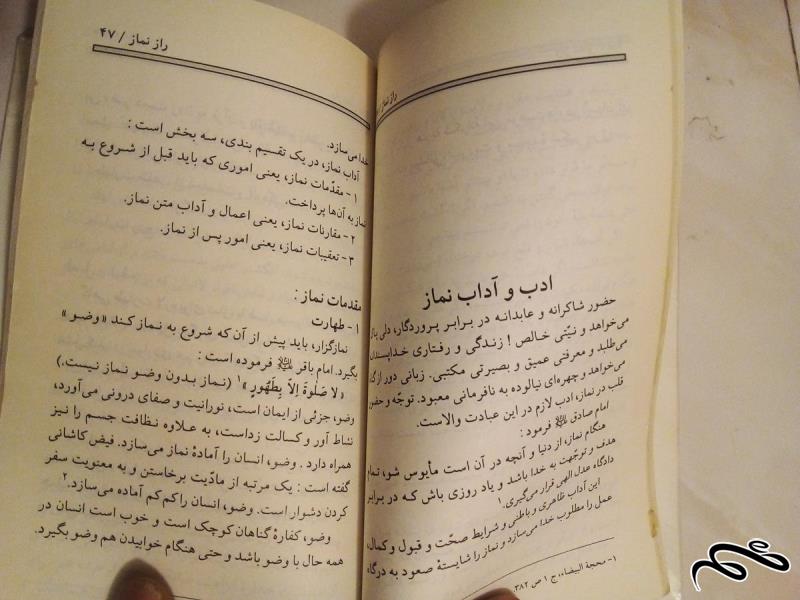 راز نماز /
ادب و آداب نماز
حضور شاکرانه و عابدانه در برابر پروردگار، دلی پاک
می‌خواهد و نیّتی خالص ! زندگی و رفتاری خداپسندانه
می‌طلبد و معرفتی عمیق و بصیرتی مکتبی. زبانی دور از گناه
می‌خواهد و چهره‌ای نیالوده به نافرمانی معبود. توجّه و حضور
قلب در نماز، ادب لازم در این عبادت والاست.
امام صادق ﷺ فرمود :
هنگام نماز، از دنیا و آنچه در آن است مأیوس شو، تمام
هدف و توجّهت به خدا باشد و یاد روزی باش که در برابر
دادگاه عدل الهی قرار می‌گیری.۱
این آداب ظاهری و باطنی و شرایط صحّت و قبول و کمال،
عمل را مطلوب خدا می‌سازد و نماز را شایستهٔ صعود به درگاه
۱- محجة البیضاء، ج ۱ ص ۳۸۲.
راز نماز / ۴۷
خدا می‌سازد.
آداب نماز، در یک تقسیم بندی، سه بخش است :
۱- مقدّمات نماز، یعنی اموری که باید قبل از شروع به
نماز به آن‌ها پرداخت.
۲- مقارنات نماز، یعنی اعمال و آداب متن نماز.
۳- تعقیبات نماز، یعنی امور پس از نماز.
مقدمات نماز :
۱- طهارت
نمازگزار، باید پیش از آن که شروع به نماز کند «وضو»
بگیرد. امام باقر ﷺ فرموده است :
«لا صَلوةَ اِلاّ بِطَهُورٍ»۱ (نماز بدون وضو نماز نیست.)
وضو، جزئی از ایمان است، نورانیت و صفای درونی می‌آورد،
نشاط آور و کسالت زداست، به علاوه نظافت جسم را نیز
همراه دارد . وضو، انسان را آمادهٔ نماز می‌سازد. فیض کاشانی
گفته است : یک مرتبه از مادّیت برخاستن و به معنویت سفر
کردن دشوار است. وضو، انسان را کم کم آماده می‌سازد.۲
وضو، کفارهٔ گناهان کوچک است و خوب است انسان در
همه حال با وضو باشد و حتی هنگام خوابیدن هم وضو بگیرد.